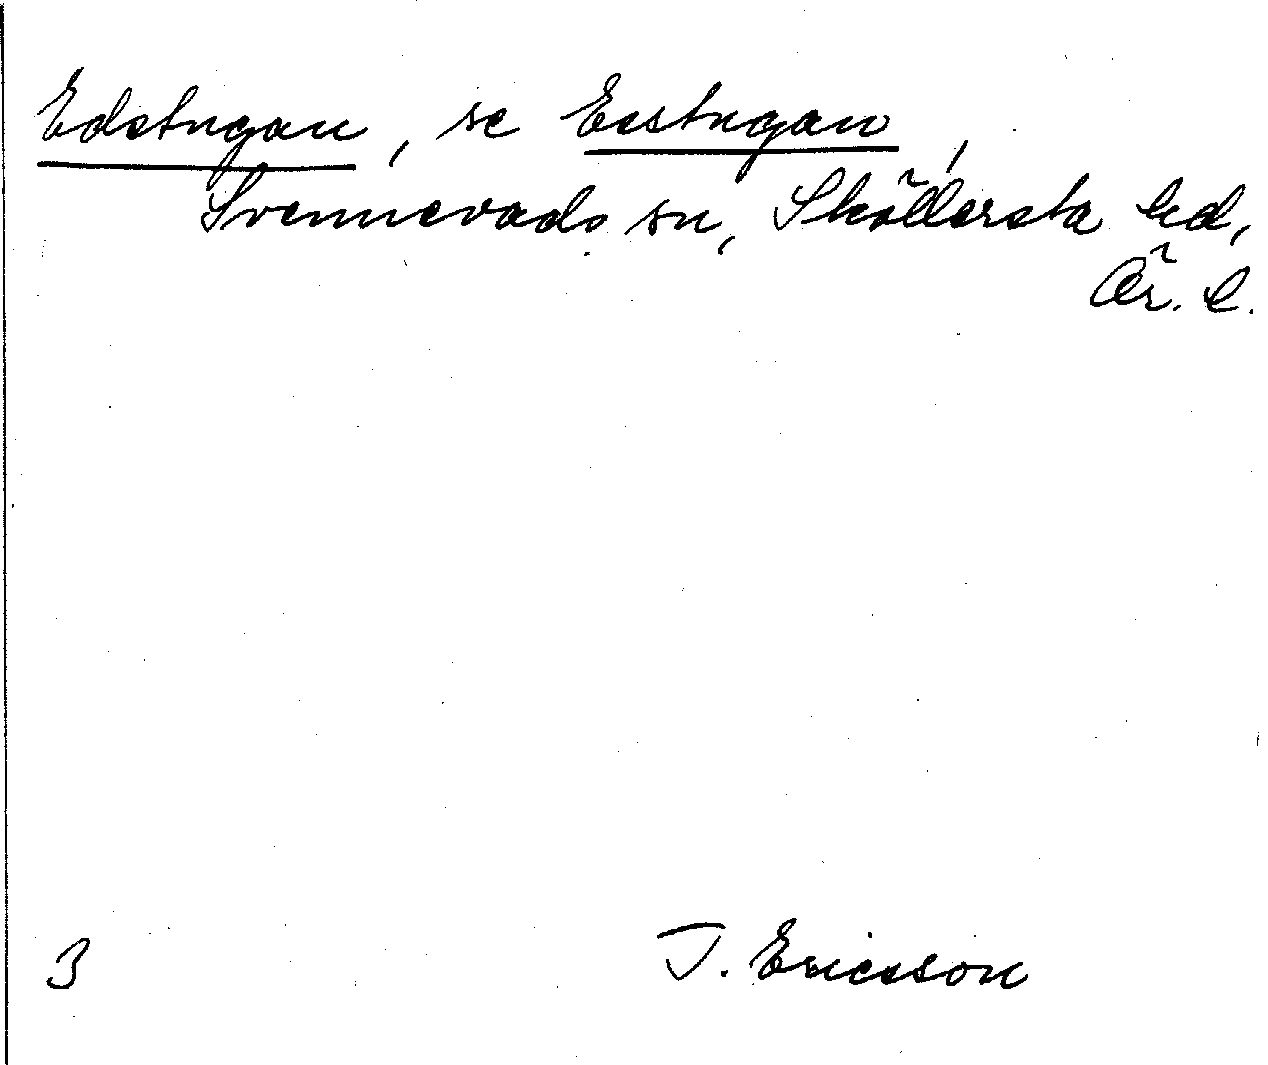 Edstugan, se Eestugan,
Svennevads sn, Sköllersta hd,
Ör. l.
3 T. Ericsson